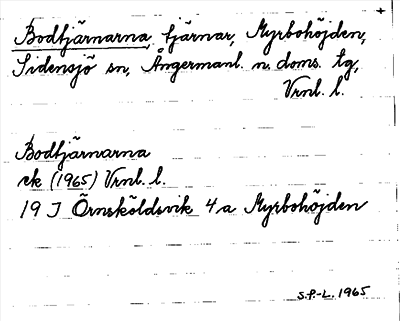 Bodtjärnarna, tjärnar, Myrbohöjden,
Sidensjö sn, Ångermanl. n. doms. tg,
Vrnl. l.
Bodtjärnarna
ek (1965) Vrnl. l.
19 J Örnsköldsvik 4a Myrbohöjden
S.P.-L. 1965